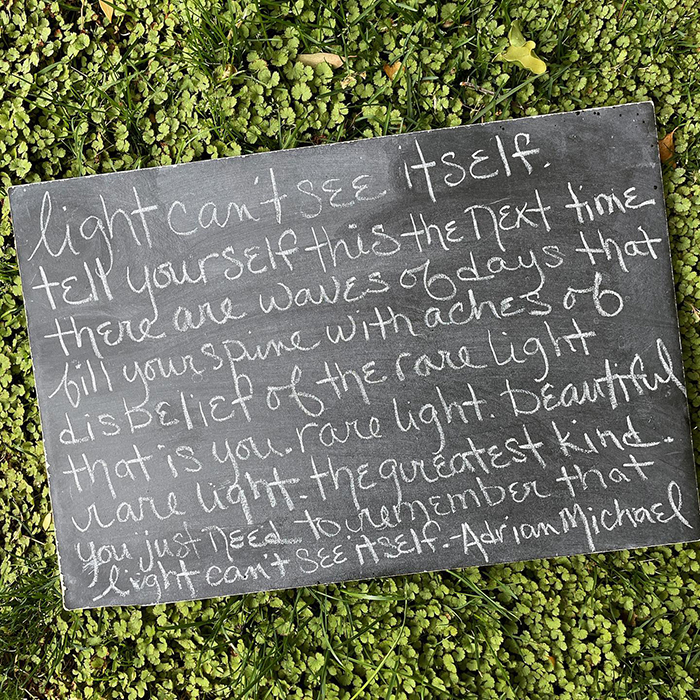 light can't see itself.
tell yourself this the next time
there are waves of days that
fill your spine with aches of
disbelief of the rare light
that is you. rare light. beautiful
rare light. the greatest kind.
you just need to remember that
light can't see itself. -Adrian Michael